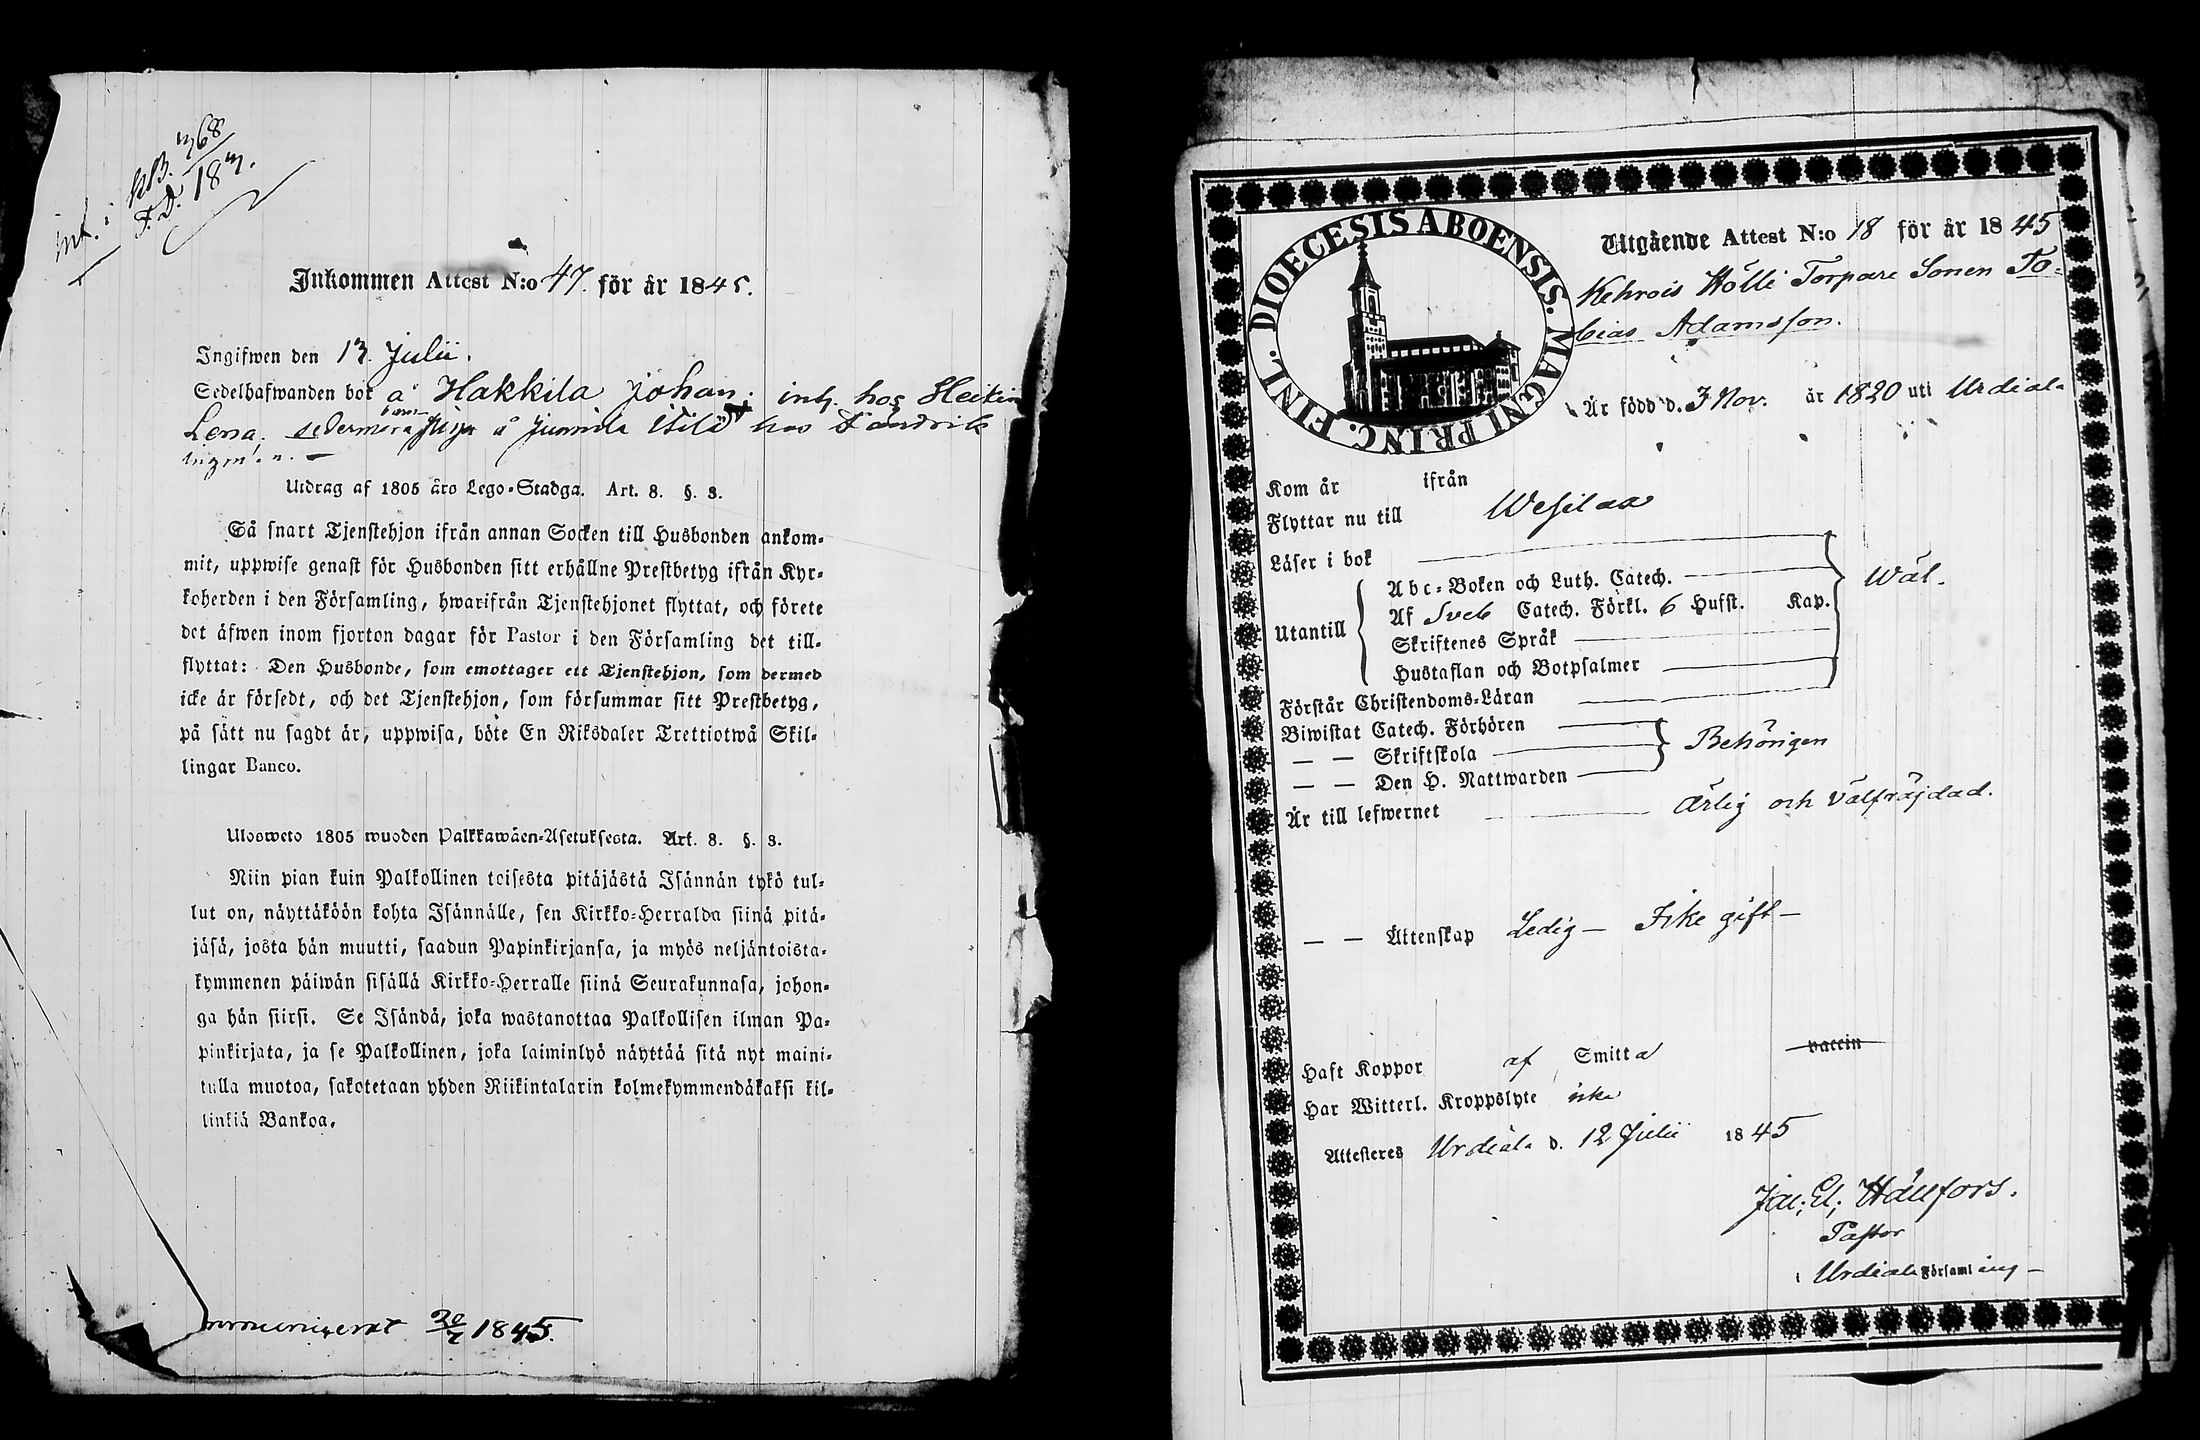 int. i KB. 768
F.D. 187.
Inkommen Attest N:o 47. för år 1845.
Ingifwen den 17. Julii.
Sedelhafwanden bor å Hakkila Johan; inh. hos Heikin
Lena. sedermera å Junnila
Utdrag af 1805 års Lego-Stadga. Art. 8. §. 3.
Så snart Tjenstehjon ifrån annan Socken till Husbonden ankom-
mit, uppwise genast för Husbonden sitt erhållne Prestbetyg ifrån Kyr-
koherden i den Församling, hwarifrån Tjenstehjonet flyttat, och förete
det äfwen inom fjorton dagar för Pastor i den Församling det till-
flyttat: Den Husbonde, som emottager ett Tjenstehjon, som dermed
icke är försedt, och det Tjenstehjon, som försummar sitt Prestbetyg,
på sätt nu sagdt är, uppwisa, böte En Riksdaler Trettiotwå Skil-
lingar Banco.
Uloswето 1805 wuoden Palkkawäen-Asetuksesta. Art. 8. §. 3.
Niin pian kuin Palkollinen toisesta pitäjästä Isännän tykö tul-
lut on, näyttäköön kohta Isännälle, sen Kirkko-Herralda siinä pitä-
jäsä, josta hän muutti, saadun Papinkirjansa, ja myös neljäntoista-
kymmenen päiwän sisällä Kirkko-Herralle siinä Seurakunnasa, johon-
ga hän siirsi. Se Isändä, joka wastanottaa Palkollisen ilman Pa-
pinkirjata, ja se Palkollinen, joka laiminlyö näyttää sitä nyt maini-
tulla muotoa, sakotetaan yhden Riikintalarin kolmekymmendäkaksi kil-
linkiä Bankoa.
20/7 1845.
DIOECESIS ABOENSIS. MAGNI PRINC. FINL.
Utgående Attest N:o 18 för år 1845
Kehrois Hölli Torpare Sonen To-
bias Adamsson.
Är född d. 3 Nov. år 1820 uti Urdiala
Kom år ifrån
Flyttar nu till Wesilax
Läser i bok
Utantill
Abc-Boken och Luth. Catech.
Af Sveb Catech. Förkl. 6 Hufst. Kap.
Skriftenes Språk
Hustaflan och Botpsalmer
Wäl.
Förstår Christendoms-Läran
Biwistat Catech. Förhören
— — Skriftskola
— — Den H. Nattwarden
Behörigen
Är till lefwernet ärlig och välfräjdad.
— — Ättenskap Ledig — Icke gift —
Haft Koppor af Smitta vaccin
Har Witterl. Kroppslyte icke
Attesteres Urdiala d. 12 Julii 1845
Hällfors.
Pastor
i Urdiala Församling —